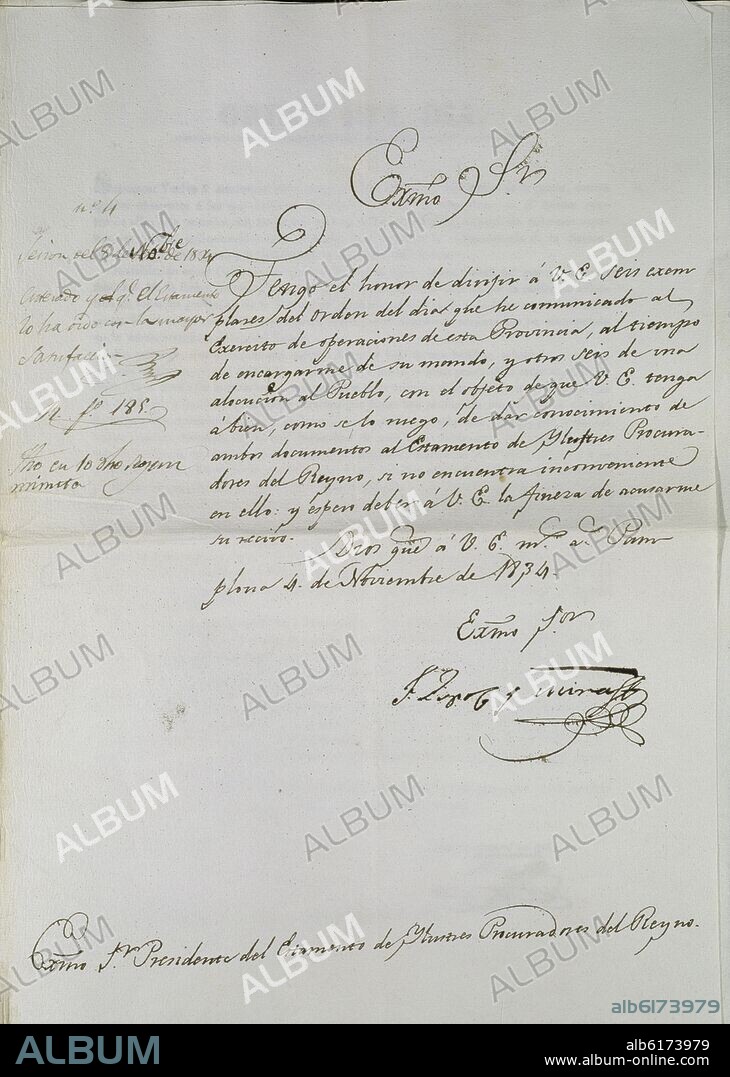 Exmo Sr
nº 4
Sesion del 8 de Nobre de 1834
Enterado y q.e el Estamento
lo ha oido con la mayor
satisfaccion
Fho en 10 dho
minuta
Tengo el honor de dirijir á V. E. seis exem
plares del orden del dia que he comunicado al
Exercito de operaciones de esta Provincia, al tiempo
de encargarme de su mando, y otros seis de una
alocucion al Pueblo, con el objeto de que V. E. tenga
á bien, como se lo ruego, de dár conocimiento de
ambos documentos al Estamento de Ylustres Procura-
dores del Reyno, si no encuentra inconveniente
en ello: y espero deber á V. E. la fineza de acusarme
su recivo.
Dios gũe á V. E. m.s a.s Pam
plona 4. de Noviembre de 1834.
Exmo Sor
F. Espoz y Mina
Exmo Sr Presidente del Estamento de Ylustres Procuradores del Reyno.
ALBUM
alb6173979
ALBUM
alb6173979
www.album-online.com